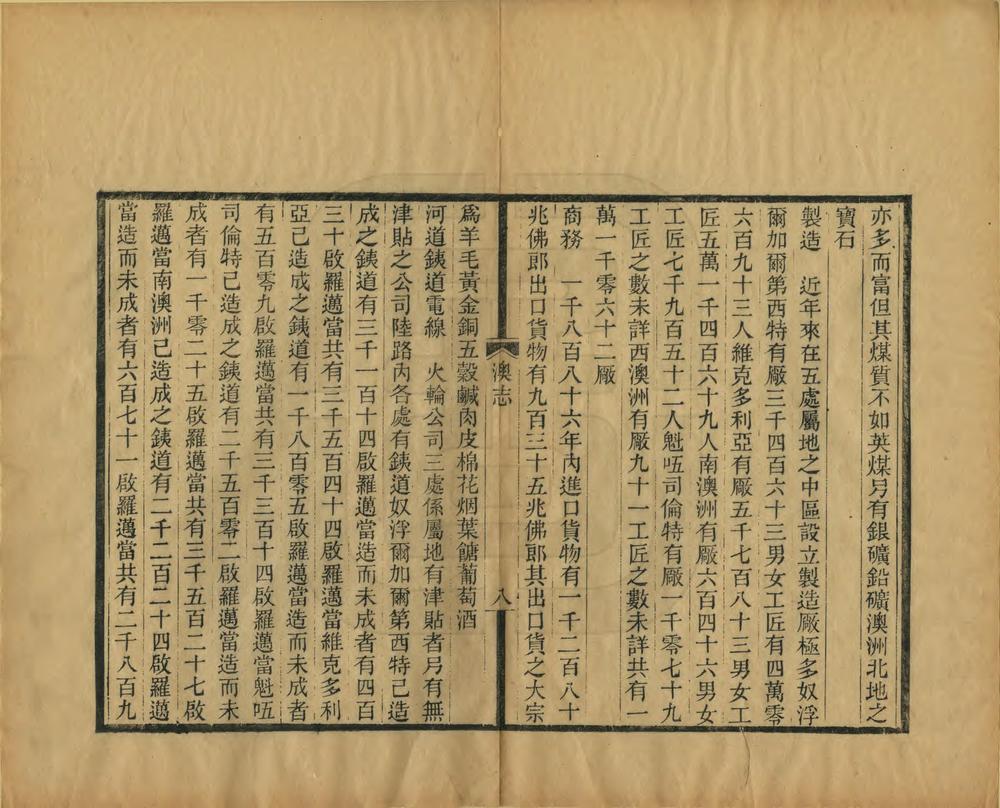 亦多而富但其煤質不如英煤另有銀礦鉛礦澳洲北地之
寶石
製造　近年來在五處屬地之中區設立製造廠極多奴浮
爾加爾第西特有廠三千四百六十三男女工匠有四萬零
六百九十三人維克多利亞有廠五千七百八十三男女工
匠五萬一千四百六十九人南澳洲有厰六百四十六男女
工匠七千九百五十二人魁呍司倫特有厰一千零七十九
工匠之數未詳西澳洲有厰九十一工匠之數未詳共有一
萬一千零六十二厰
商務　一千八百八十六年內進口貨物有一千二百八十
兆佛郎出口貨物有九百三十五兆佛郎其出口貨之大宗
澳志
八
爲羊毛黃金銅五穀鹹肉皮棉花烟葉餹葡萄酒
河道鐵道電線　火輪公司三處係屬地有津貼者另有無
津貼之公司陸路內各處有鐵道奴浮爾加爾第西特已造
成之鐵道有三千一百十四啟羅邁當造而未成者有四百
三十啟羅邁當共有三千五百四十四啟羅邁當維克多利
亞已造成之鐵道有一千八百零五啟羅邁當造而未成者
有五百零九啟羅邁當共有三千三百十四啟羅邁當魁呍
司倫特已造成之鐵道有二千五百零二啟羅邁當造而未
成者有一千零二十五啟羅邁當共有三千五百二十七啟
羅邁當南澳洲已造成之鐵道有二千二百二十四啟羅邁
當造而未成者有六百七十一啟羅邁當共有二千八百九